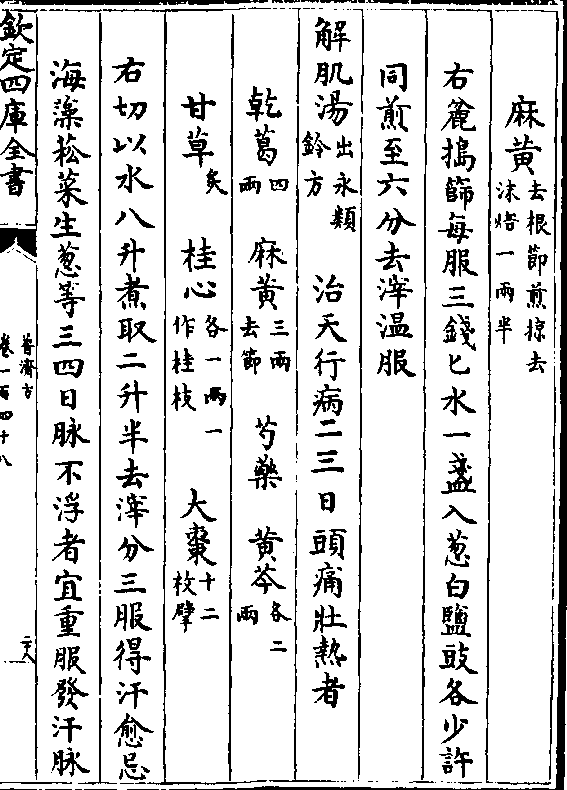 麻黄去根節煎掠去沫焙一兩半
右麄搗篩每服三錢匕水一盞入葱白鹽豉各少許
同煎至六分去滓温服
解肌湯出永類鈴方 治天行病二三日頭痛壯熱者
乾葛四兩 麻黄三兩去節 芍藥 黄芩各二兩
甘草炙 桂心各一兩一作桂枝 大棗十二枚擘
右切以水八升煮取二升半去滓分三服得汗愈忌
海藻菘菜生葱等三四日脉不浮者宜重服發汗脉
欽定四庫全書
普濟方
卷一百四十八